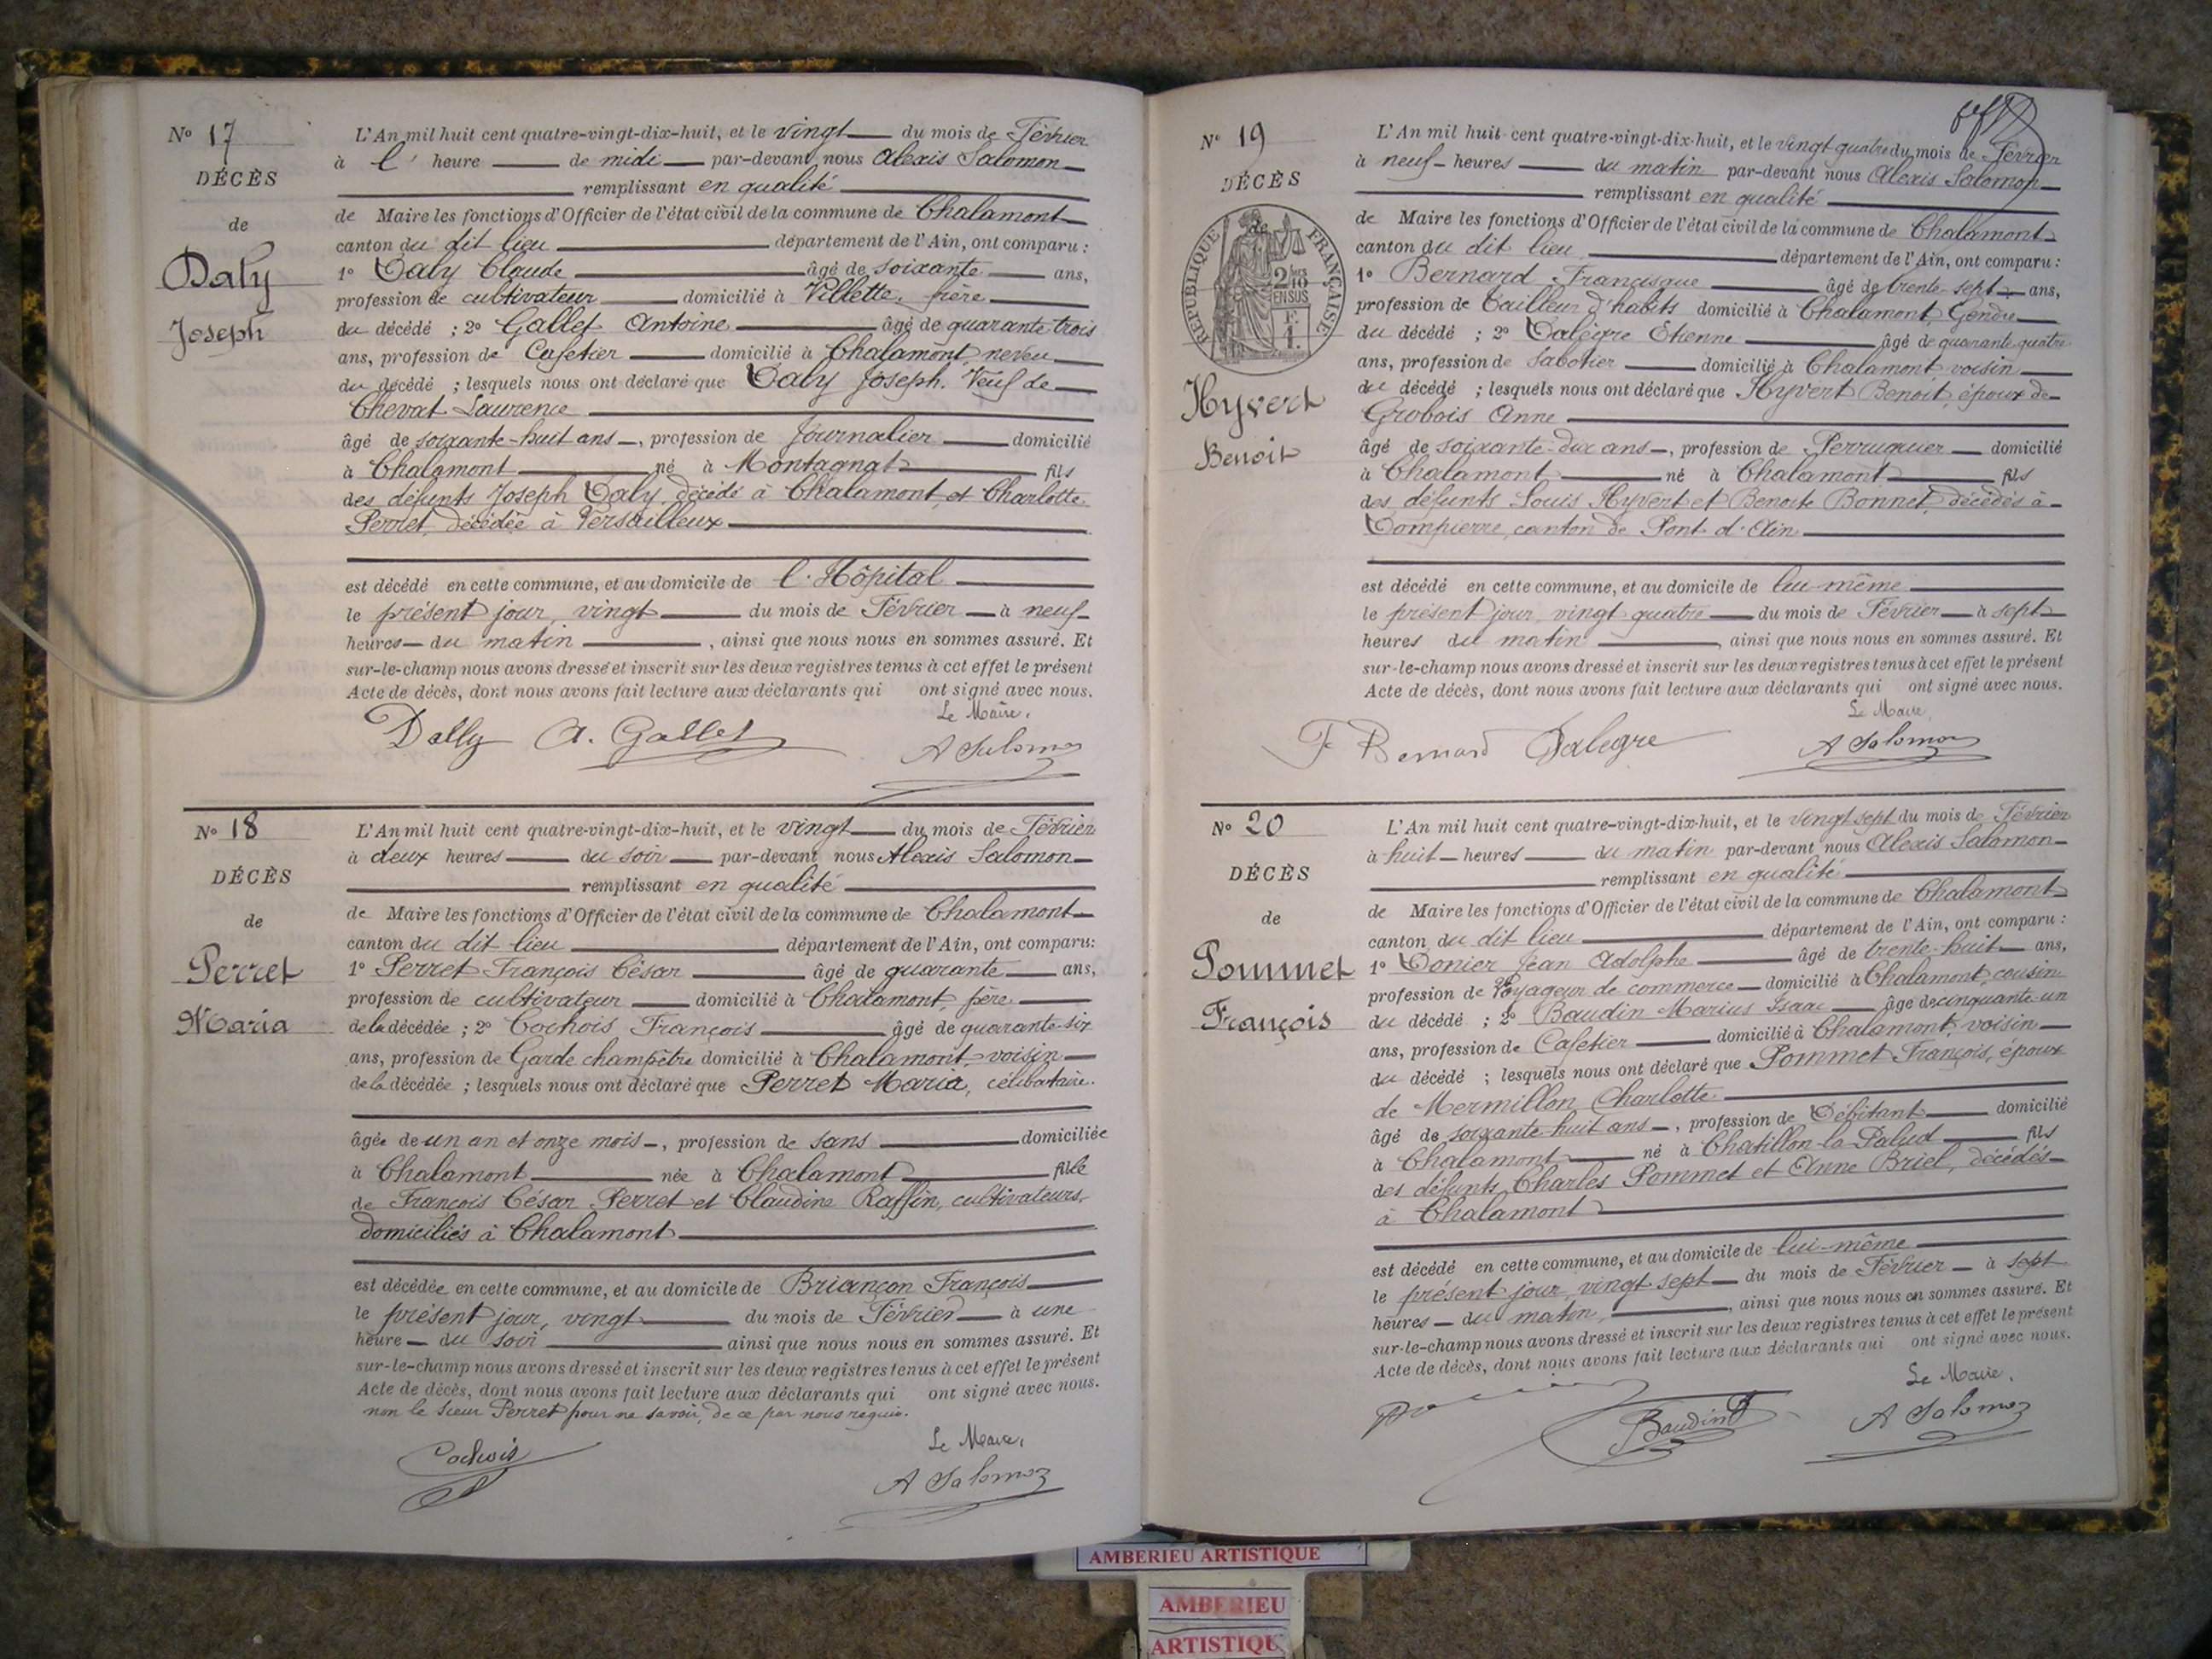 Nº 17
DÉCÈS
de
Daly
Joseph
L'An mil huit cent quatre-vingt-dix-huit, et le vingt du mois de Février
à l' heure de midi par-devant nous Alexis Salomon
remplissant en qualité
de Maire les fonctions d'Officier de l'état civil de la commune de Chalamont
canton du dit lieu département de l'Ain, ont comparu :
1º Daly Claude âgé de soixante ans,
profession de cultivateur domicilié à Villette, frère
du décédé ; 2º Gallet Antoine âgé de quarante trois
ans, profession de Cafetier domicilié à Chalamont, neveu
du décédé ; lesquels nous ont déclaré que Daly Joseph. Veuf de
Chevat Laurence
âgé de soixante-huit ans, profession de Journalier domicilié
à Chalamont né à Montagnat fils
des défunts Joseph Daly, décédé à Chalamont, et Charlotte
Perret, décédée à Versailleux
est décédé en cette commune, et au domicile de l'Hôpital
le présent jour, vingt du mois de Février à neuf
heures du matin, ainsi que nous nous en sommes assuré. Et
sur-le-champ nous avons dressé et inscrit sur les deux registres tenus à cet effet le présent
Acte de décès, dont nous avons fait lecture aux déclarants qui ont signé avec nous.
Le Maire,
Dally A. Gallet A Salomon
Nº 18
DÉCÈS
de
Perret
Maria
L'An mil huit cent quatre-vingt-dix-huit, et le vingt du mois de Février
à deux heures du soir par-devant nous Alexis Salomon
remplissant en qualité
de Maire les fonctions d'Officier de l'état civil de la commune de Chalamont
canton du dit lieu département de l'Ain, ont comparu:
1º Perret François César âgé de quarante ans,
profession de cultivateur domicilié à Chalamont, père
de la décédée ; 2º Cochois François âgé de quarante-six
ans, profession de Garde champêtre domicilié à Chalamont, voisin
de la décédée ; lesquels nous ont déclaré que Perret Maria, célibataire.
âgée de un an et onze mois, profession de sans domiciliée
à Chalamont née à Chalamont fille
de François César Perret et Claudine Raffin, cultivateurs,
domiciliés à Chalamont
est décédée en cette commune, et au domicile de Briançon François
le présent jour, vingt du mois de Février à une
heure du soir, ainsi que nous nous en sommes assuré. Et
sur-le-champ nous avons dressé et inscrit sur les deux registres tenus à cet effet le présent
Acte de décès, dont nous avons fait lecture aux déclarants qui ont signé avec nous.
non le sieur Perret pour ne savoir, de ce par nous requis.
Le Maire,
Cochois A Salomon
Nº 19
DÉCÈS
de
RÉPUBLIQUE FRANÇAISE
2/10
EN SUS
Hyvert
Benoit
L'An mil huit cent quatre-vingt-dix-huit, et le vingt quatre du mois de Février
à neuf heures du matin par-devant nous Alexis Salomon
remplissant en qualité
de Maire les fonctions d'Officier de l'état civil de la commune de Chalamont
canton du dit lieu département de l'Ain, ont comparu :
1º Bernard Francisque âgé de trente-sept ans,
profession de Tailleur d'habits domicilié à Chalamont, Gendre
du décédé ; 2º Dalègre Etienne âgé de quarante quatre
ans, profession de sabotier domicilié à Chalamont voisin
du décédé ; lesquels nous ont déclaré que Hyvert Benoit, époux de
Grobois Anne
âgé de soixante-dix ans, profession de Perruquier domicilié
à Chalamont né à Chalamont fils
des défunts Louis Hyvert et Benoite Bonnet, décédés à
Dompierre, canton de Pont d'Ain
est décédé en cette commune, et au domicile de lui-même
le présent jour, vingt quatre du mois de Février à sept
heures du matin, ainsi que nous nous en sommes assuré. Et
sur-le-champ nous avons dressé et inscrit sur les deux registres tenus à cet effet le présent
Acte de décès, dont nous avons fait lecture aux déclarants qui ont signé avec nous.
Le Maire,
F Bernard Dalegre A Salomon
Nº 20
DÉCÈS
de
Pommet
François
L'An mil huit cent quatre-vingt-dix-huit, et le vingt sept du mois de Février
à huit heures du matin par-devant nous Alexis Salomon
remplissant en qualité
de Maire les fonctions d'Officier de l'état civil de la commune de Chalamont
canton du dit lieu département de l'Ain, ont comparu :
1º Donier Jean Adolphe âgé de trente-huit ans,
profession de Voyageur de commerce domicilié à Chalamont, cousin
du décédé ; 2º Baudin Marius Isaac âgé de cinquante-un
ans, profession de Cafetier domicilié à Chalamont, voisin
du décédé ; lesquels nous ont déclaré que Pommet François, époux
de Mermillon Charlotte
âgé de soixante-huit ans, profession de Débitant domicilié
à Chalamont né à Chatillon-la-Palud fils
des défunts Charles Pommet et Anne Briel, décédés
à Chalamont
est décédé en cette commune, et au domicile de lui-même
le présent jour, vingt sept du mois de Février à sept
heures du matin, ainsi que nous nous en sommes assuré. Et
sur-le-champ nous avons dressé et inscrit sur les deux registres tenus à cet effet le présent
Acte de décès, dont nous avons fait lecture aux déclarants qui ont signé avec nous.
Le Maire,
Baudin A Salomon
AMBERIEU ARTISTIQUE
AMBERIEU
ARTISTIQU